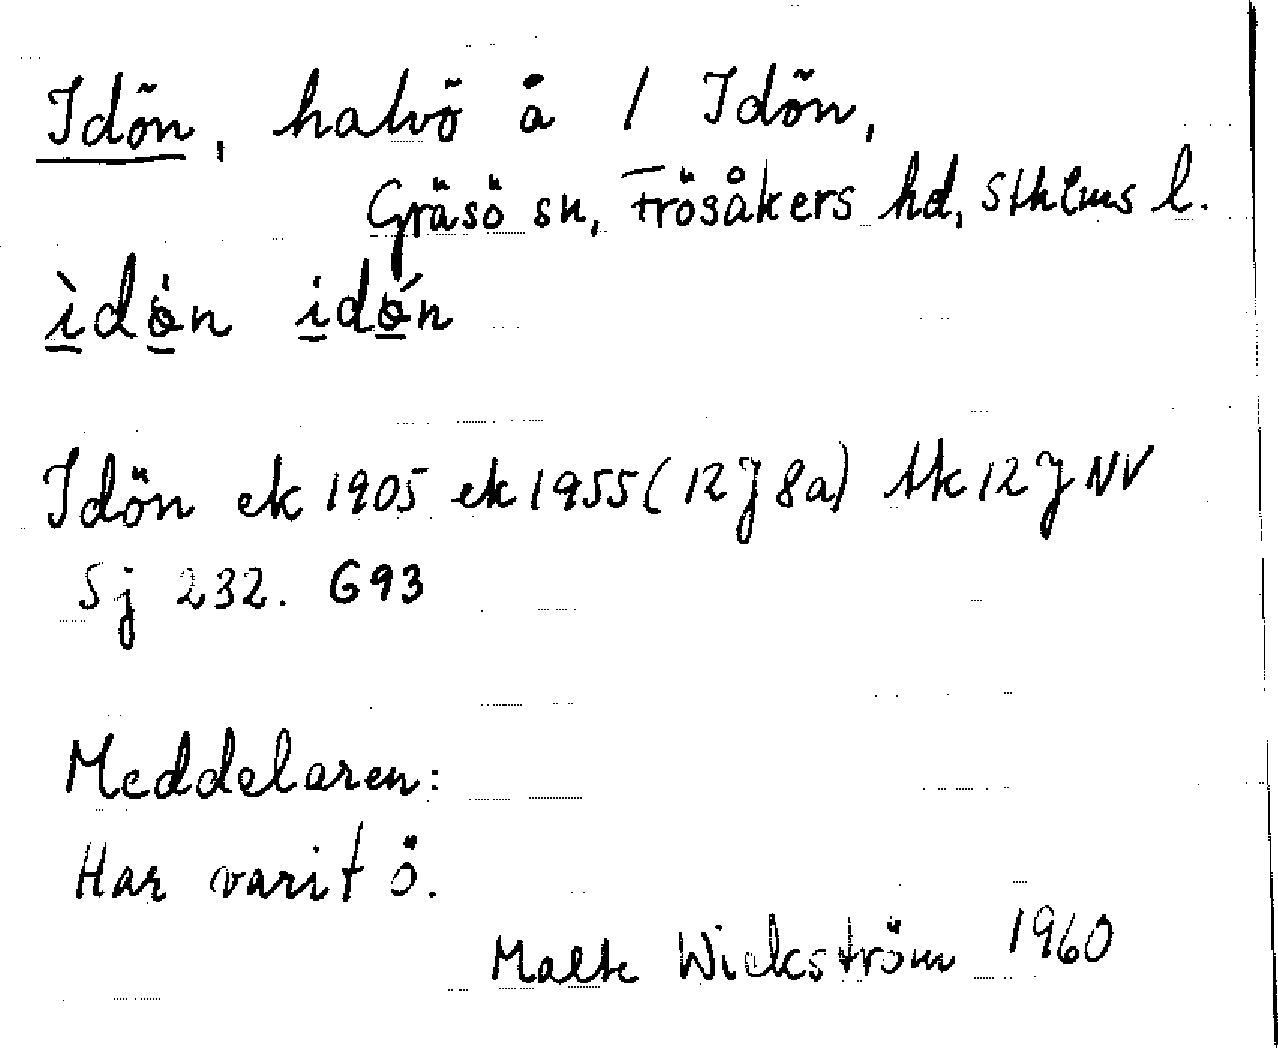 Idön, halvö å / Idön,
Gräsö sn, Frösåkers hd, Sthlms l.
ìdö̀n idǿn
Idön ek 1905 ek 1955 (12J 8a) tk 12J NV
Sj 232. G93
Meddelaren:
Har varit ö.
Malte Wickström 1960